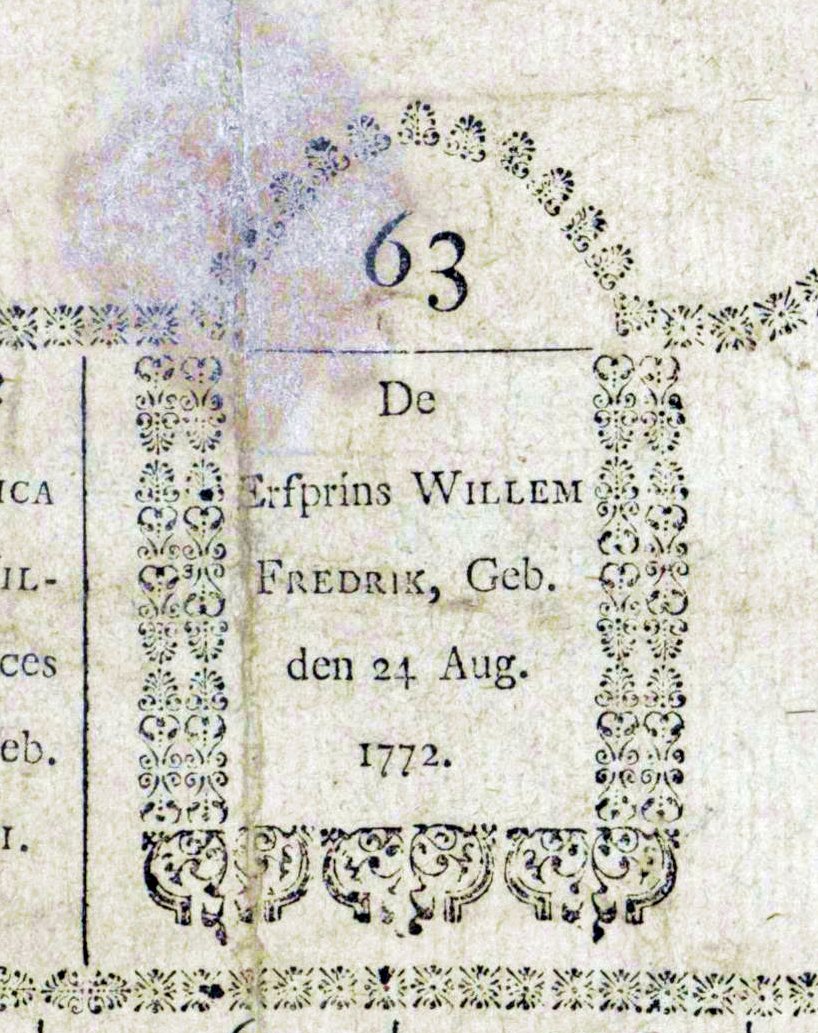 63
De
Erfprins WILLEM
FREDRIK, Geb.
den 24 Aug.
1772.
ICA
IL-
ces
eb.
I.